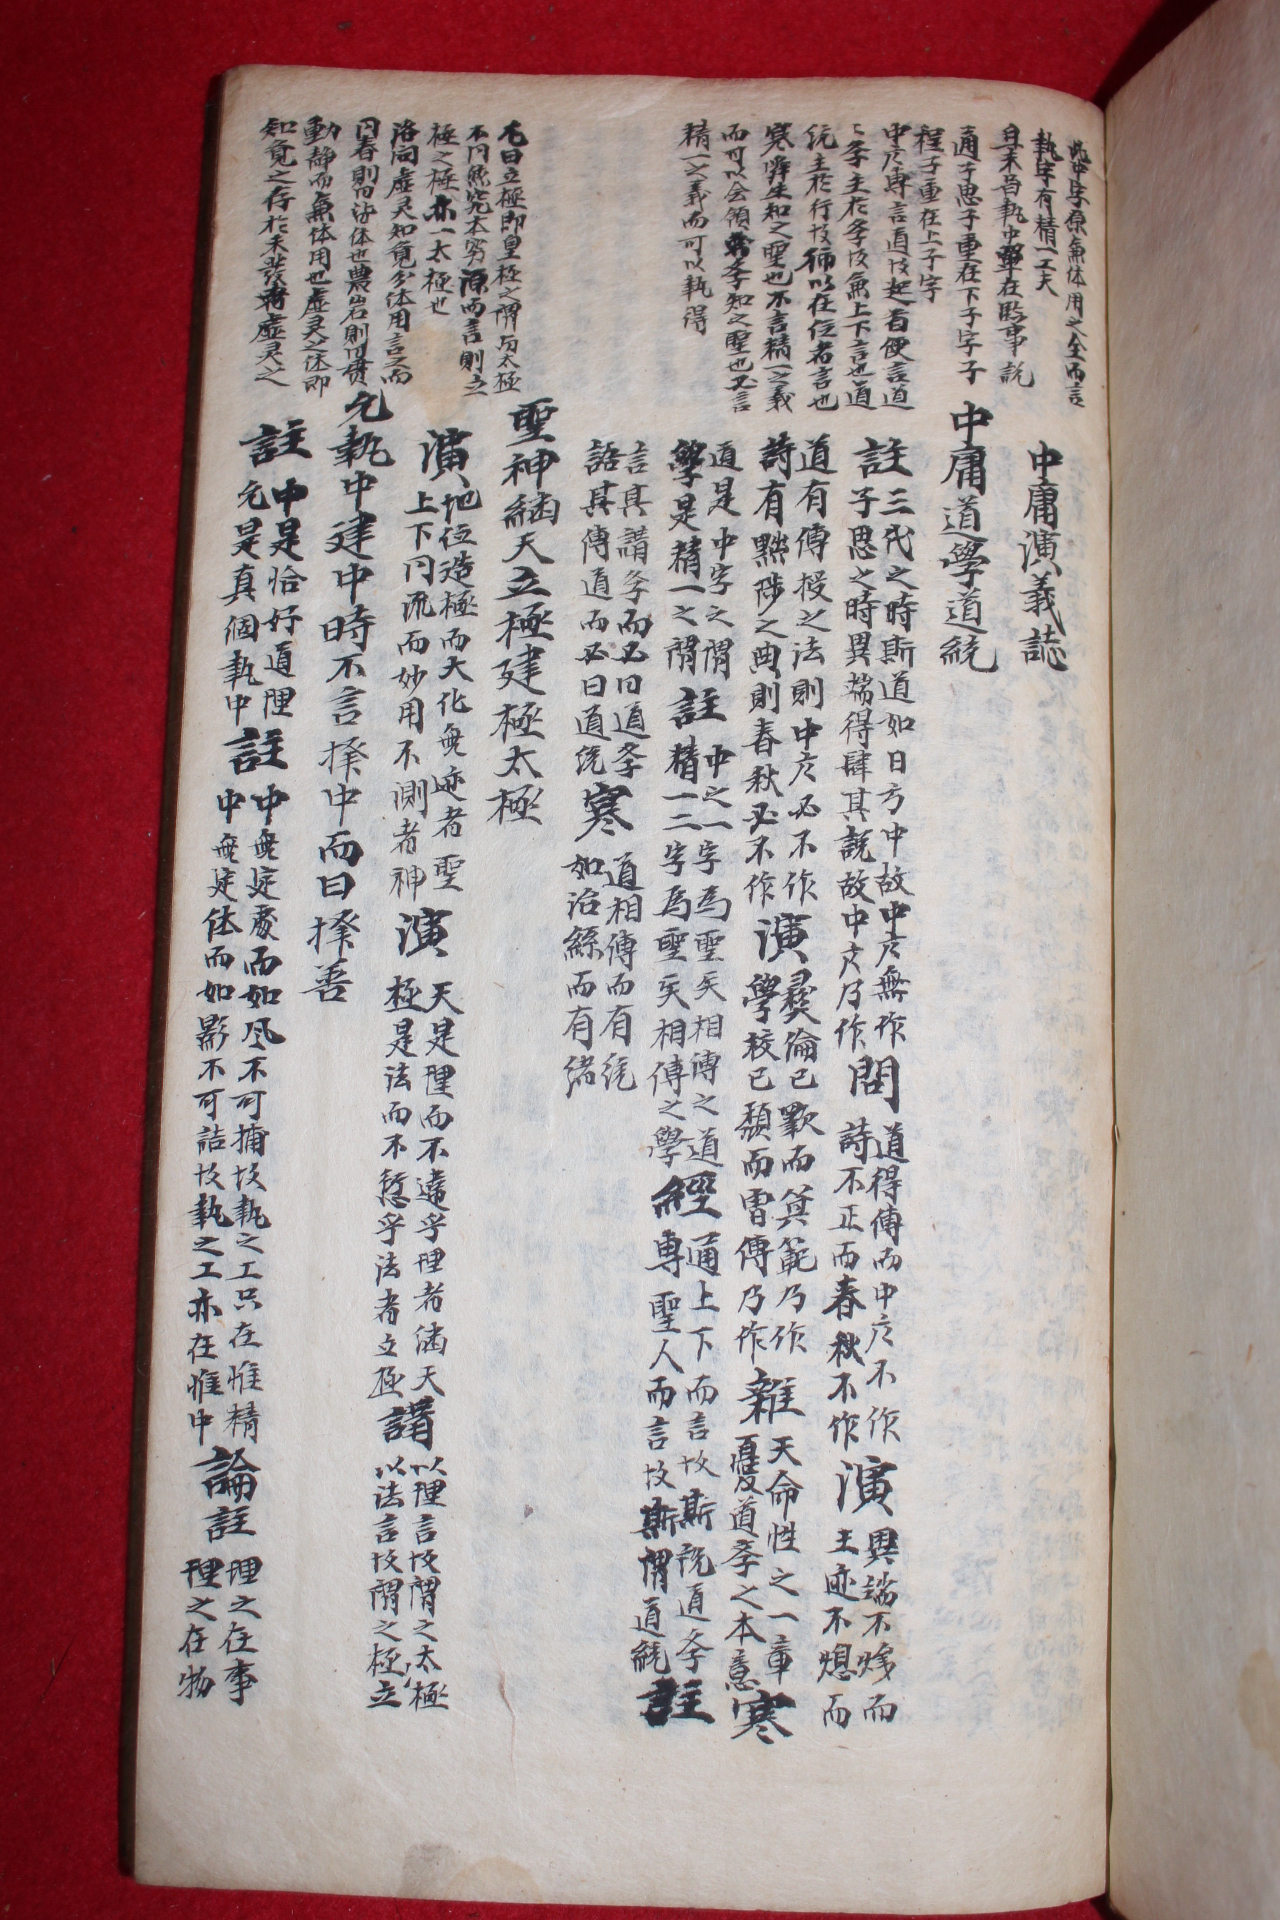 此中字原兼体用之全而言
執字有精一工夫
且未曾執中單在臨事說
通子思子重在下子字子
程子重在上子字
中庸專言道故起首便言道
學主於學故兼上下言也道
統主於行故偏以在位者言也
寒舜生知之聖也不言精一之義
而可以会領 學知之聖也又言
精一之義而可以執得
尤曰立極即皇極之謂与太極
不同然究本穷源而言則立
極之極亦一太極也
洛同虛灵知覺分体用言之而
同春則曰 体也農岩則曰貫
動静而兼体用也虛灵之体即
知覺之存於未發者虛灵之
中庸演義誌
中庸道學道統
註 三代之時斯道如日方中故中庸無作
子思之時異端得肆其說故中庸乃作 問 道得傳而中庸不作
詩不正而春秋不作 演 異端不熄而
王迹不熄而
道有傳授之法則中庸必不作
詩有黜陟之典則春秋必不作 演 彛倫已斁而箕範乃作
學校已頹而曾傳乃作 雜 天命性之一章
憂道學之本意 寒
道是中字之謂
學是精一之謂 註 中之一字為聖矣相傳之道
精一二字為聖矣相傳之學 經 通上下而言故斯說道學
專聖人而言故斯謂道統 註
言其講學而必曰道學
語其傳道而必曰道統 寒 道相傳而有統
如治絲而有緒
聖神繼天立極建極太極
演 地位造極而大化無迹者聖
上下同流而妙用不測者神 演 天是理而不違乎理者繼天
極是法而不愆乎法者立極 講 以理言故謂之太極
以法言故謂之立極
允執中建中時不言擇中而曰擇善
註 中是恰好道理
允是真個執中 註 中無定處而如風不可捕故執之工只在惟精
中無定体而如影不可詰故執之工亦在惟中 論註 理之在事
理之在物